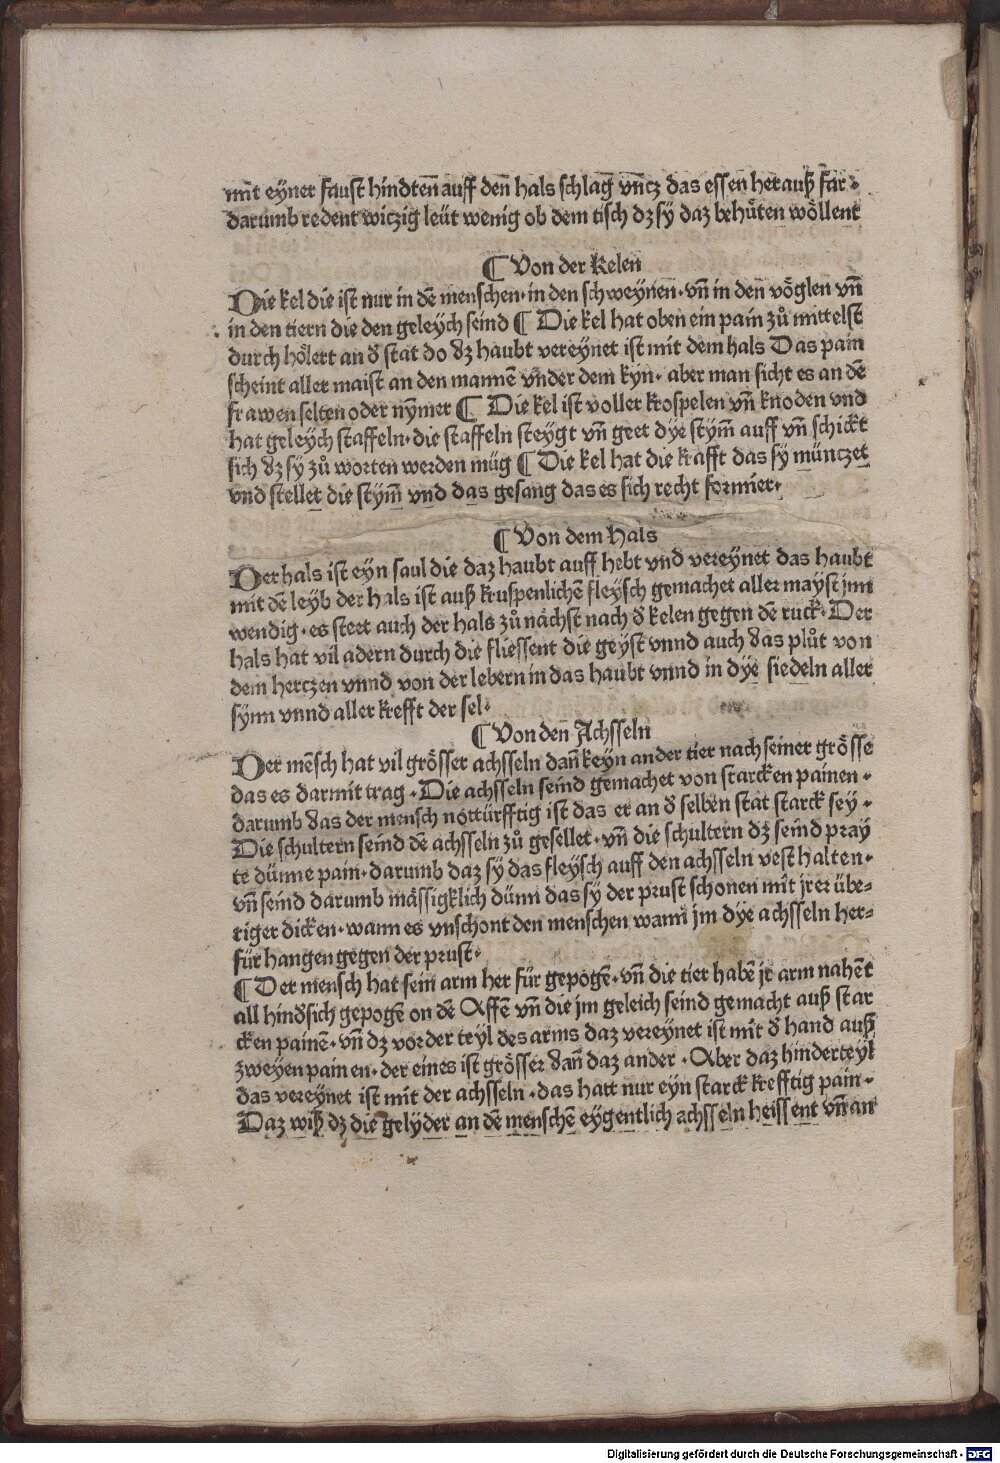 mit eyner faust hindteñ auff deñ hals schlag vñcz das essen herauß far·
darumb redent wiczig leüt wenig ob dem tisch dz sÿ daz behu̇ten wo̊llent
¶ Von der Kelen
Die kel die ist nur in dẽ menschen· in den schweynen· vñ in den vo̊glen vñ
in den tiern die den geleÿch seind ¶ Die kel hat oben ein pain zů mittelst
durch ho̊lert an ð stat do dz haubt vereynet ist mit dem hals Das pain
scheint aller maist an den mannẽ vnder dem kyn· aber man sicht es an dẽ
frawen selten oder nÿmer ¶ Die kel ist voller krospelen vñ knoden vnd
hat geleÿch staffeln· die staffeln steÿgt vñ geet dÿe stÿm̃ auff vñ schickt
sich dz sÿ zů worten werden müg ¶ Die kel hat die krafft das sÿ münczet
vnd stellet die stÿm̃ vnd das gesang das es sich recht formier·
¶ Von dem Hals
Der hals ist eyn saul die daz haubt auff hebt vnd vereynet das haubt
mit dẽ leÿb der hals ist auß kruspenlichẽ fleÿsch gemachet aller maÿst jnn
wendig· es steet auch der hals zů nächst nach ð kelen gegen dẽ ruck· Der
hals hat vil adern durch die fliessent die geÿst vnnd auch das plůt von
dem herczen vnnd von der lebern in das haubt vnnd in dÿe siedeln aller
sÿnn vnnd aller krefft der sel·
¶ Von deñ Achsseln
Der mẽsch hat vil gro̊sser achsseln dañ keyn ander tier nach seiner gro̊sse
das es darmit trag· Die achsseln seind gemachet von starcken painen·
darumb das der mensch notturfftig ist das er an ð selben stat starck sey·
Die schultern seind dẽ achsseln zů gesellet· vñ die schultern dz seind praÿ
te dünne pain· darumb daz sÿ das fleÿsch auff den achsseln vest halten·
vñ seind darumb mässigklich dünn das sÿ der prust schonen mit jrer übe⸗
riger dicken· wann es vnschont den menschen wann jm dÿe achsseln her⸗
für hangen gegen der prust·
¶ Der mensch hat sein arm her für gepogẽ· vñ die tier habẽ jr arm nahẽt
all hindsich gepogẽ on dẽ Affẽ vñ die jm geleich seind gemacht auß star
cken painẽ· vñ dz vorder teÿl des arms daz vereynet ist mit ð hand auß
zweÿen painen· der eines ist gro̊sser dañ daz ander· Aber daz hinderteÿl
das vereynet ist mit der achsseln· das hatt nur eyn starck krefftig pain·
Daz wiß dz die gelÿder an dẽ menschẽ eÿgentlich achsseln heissent vñ an
Digitalisierung gefördert durch die Deutsche Forschungsgemeinschaft - DFG